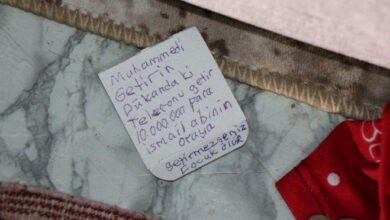 Muhammedi
Getirin
Dükanda ki
Telefonu getir
10.000000 Para
ismail abinin
oraya
getirmezseniz
Çocuk ölür